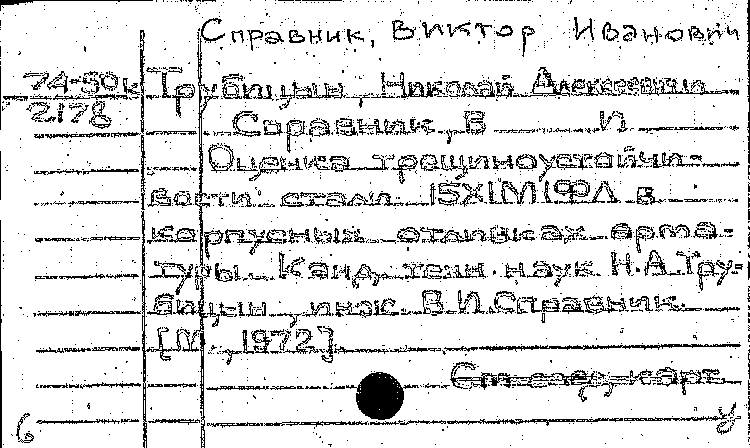 Справник, Виктор Иванович
74-50к Трубицын, Николай Алексеевич
2178
Справник, В И
Оценка трещиноустойчи-
вости стали 15Х1М1ФЛ в
корпусных отливках арма-
туры. Канд. техн. наук Н.А.Тру-
бицын, инж. В.И.Справник.
[М., 1972].
См след. карт.
б у